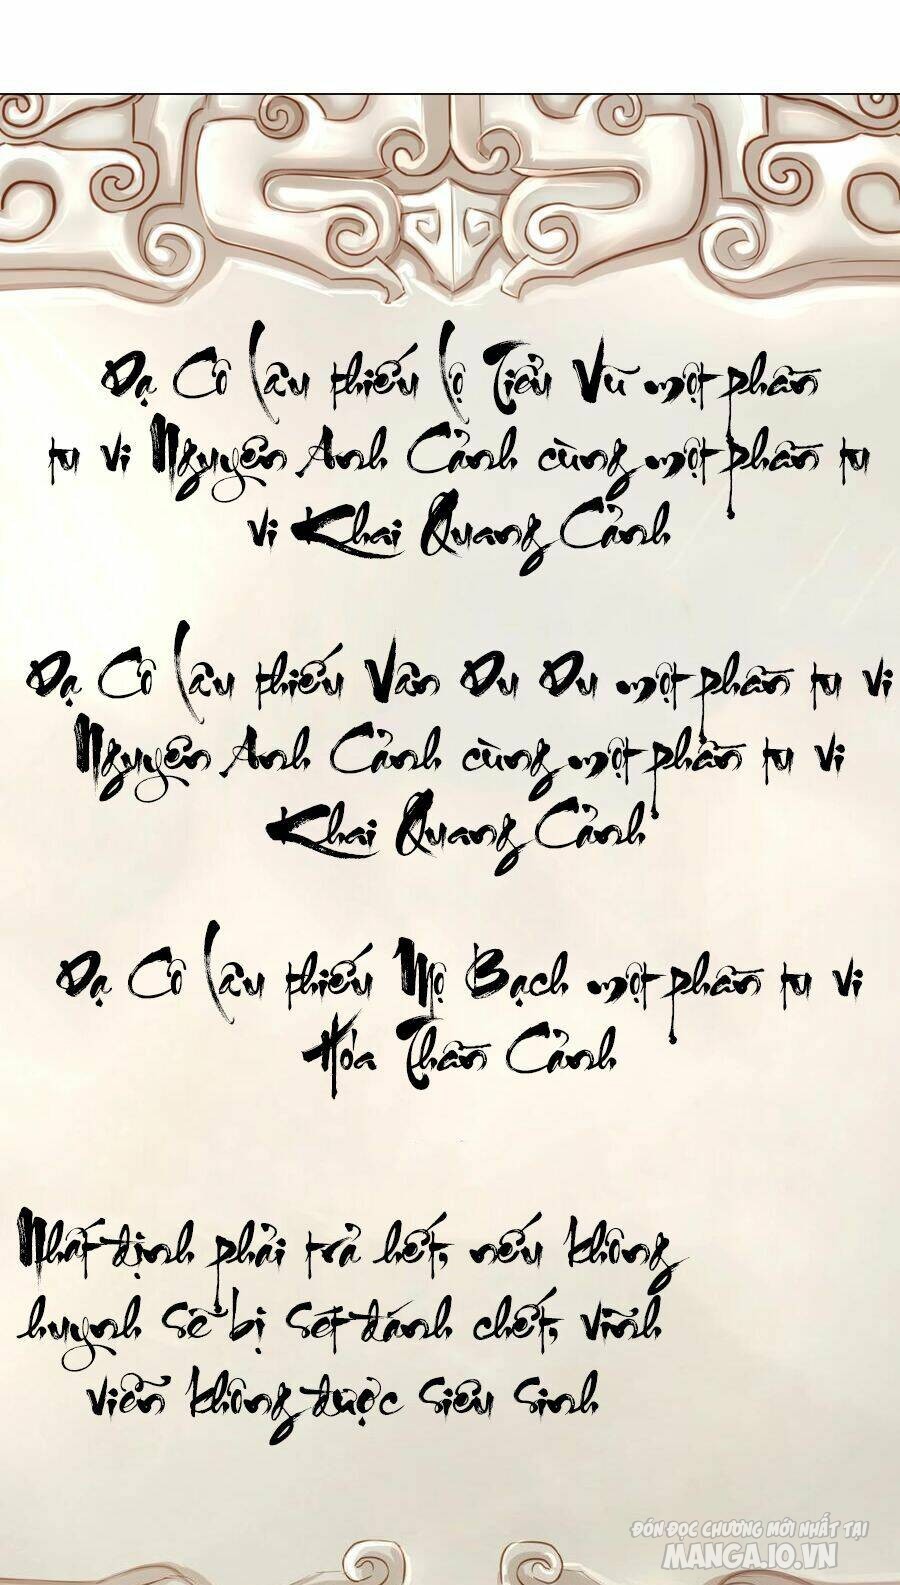 Dạ Cô Lâu thiếu Lộ Tiểu Vũ một phần
tu vi Nguyên Anh Cảnh cùng một phần tu
vi Khai Quang Cảnh
Dạ Cô Lâu thiếu Vân Du Du một phần tu vi
Nguyên Anh Cảnh cùng một phần tu vi
Khai Quang Cảnh
Dạ Cô Lâu thiếu Mộ Bạch một phần tu vi
Hóa Thần Cảnh
Nhất định phải trả hết, nếu không
huynh sẽ bị sét đánh chết, vĩnh
viễn không được siêu sinh
ĐÓN ĐỌC CHƯƠNG MỚI NHẤT TẠI
MANGA.IO.VN